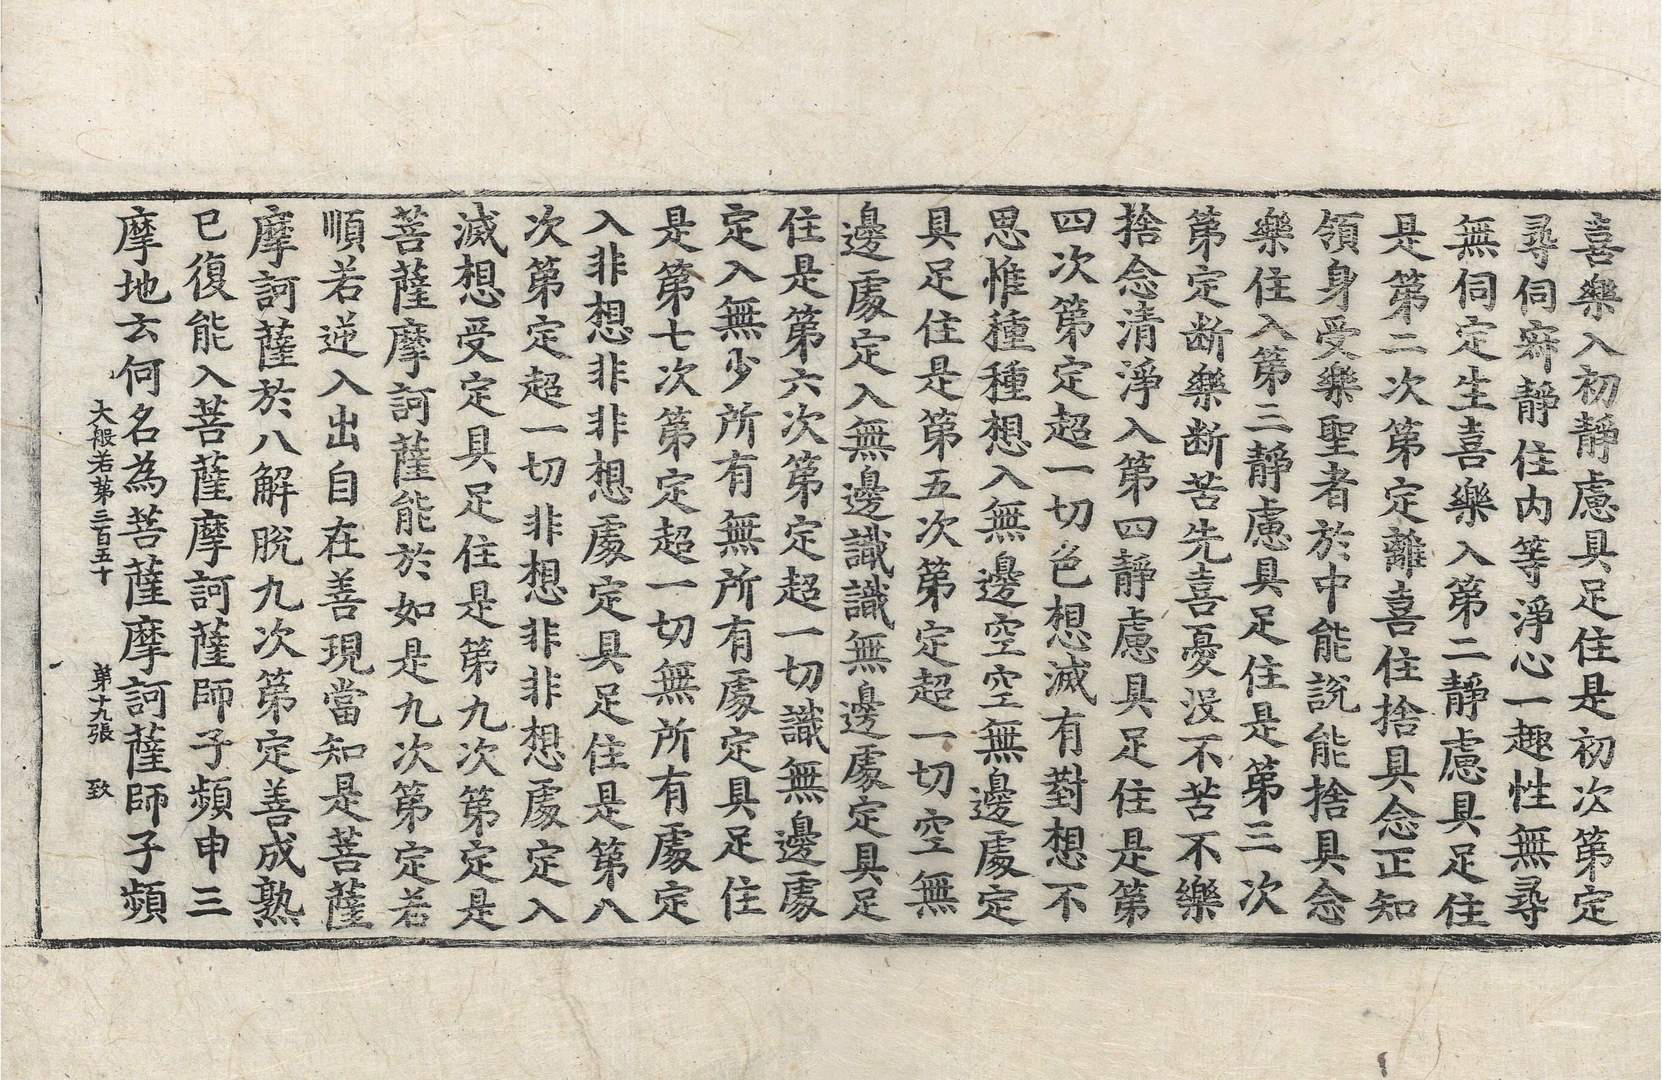 喜樂入初靜慮具足住是初次第定
尋伺寂靜住内等淨心一趣性無尋
無伺定生喜樂入第二靜慮具足住
是第二次第定離喜住捨具念正知
領身受樂聖者於中能說能捨具念
樂住入第三靜慮具足住是第三次
第定断樂断苦先喜憂沒不苦不樂
捨念清淨入第四靜慮具足住是第
四次第定超一切色想滅有對想不
思惟種種想入無邊空空無邊處定
具足住是第五次第定超一切空無
邊處定入無邊識識無邊處定具足
住是第六次第定超一切識無邊處
定入無少所有無所有處定具足住
是第七次第定超一切無所有處定
入非想非非想處定具足住是第八
次第定超一切非想非非想處定入
滅想受定具足住是第九次第定是
菩薩摩訶薩能於如是九次第定若
順若逆入出自在善現當知是菩薩
摩訶薩於八解脫九次第定善成熟
已復能入菩薩摩訶薩師子頻申三
摩地云何名為菩薩摩訶薩師子頻
大般若第三百五十 第十九張 致